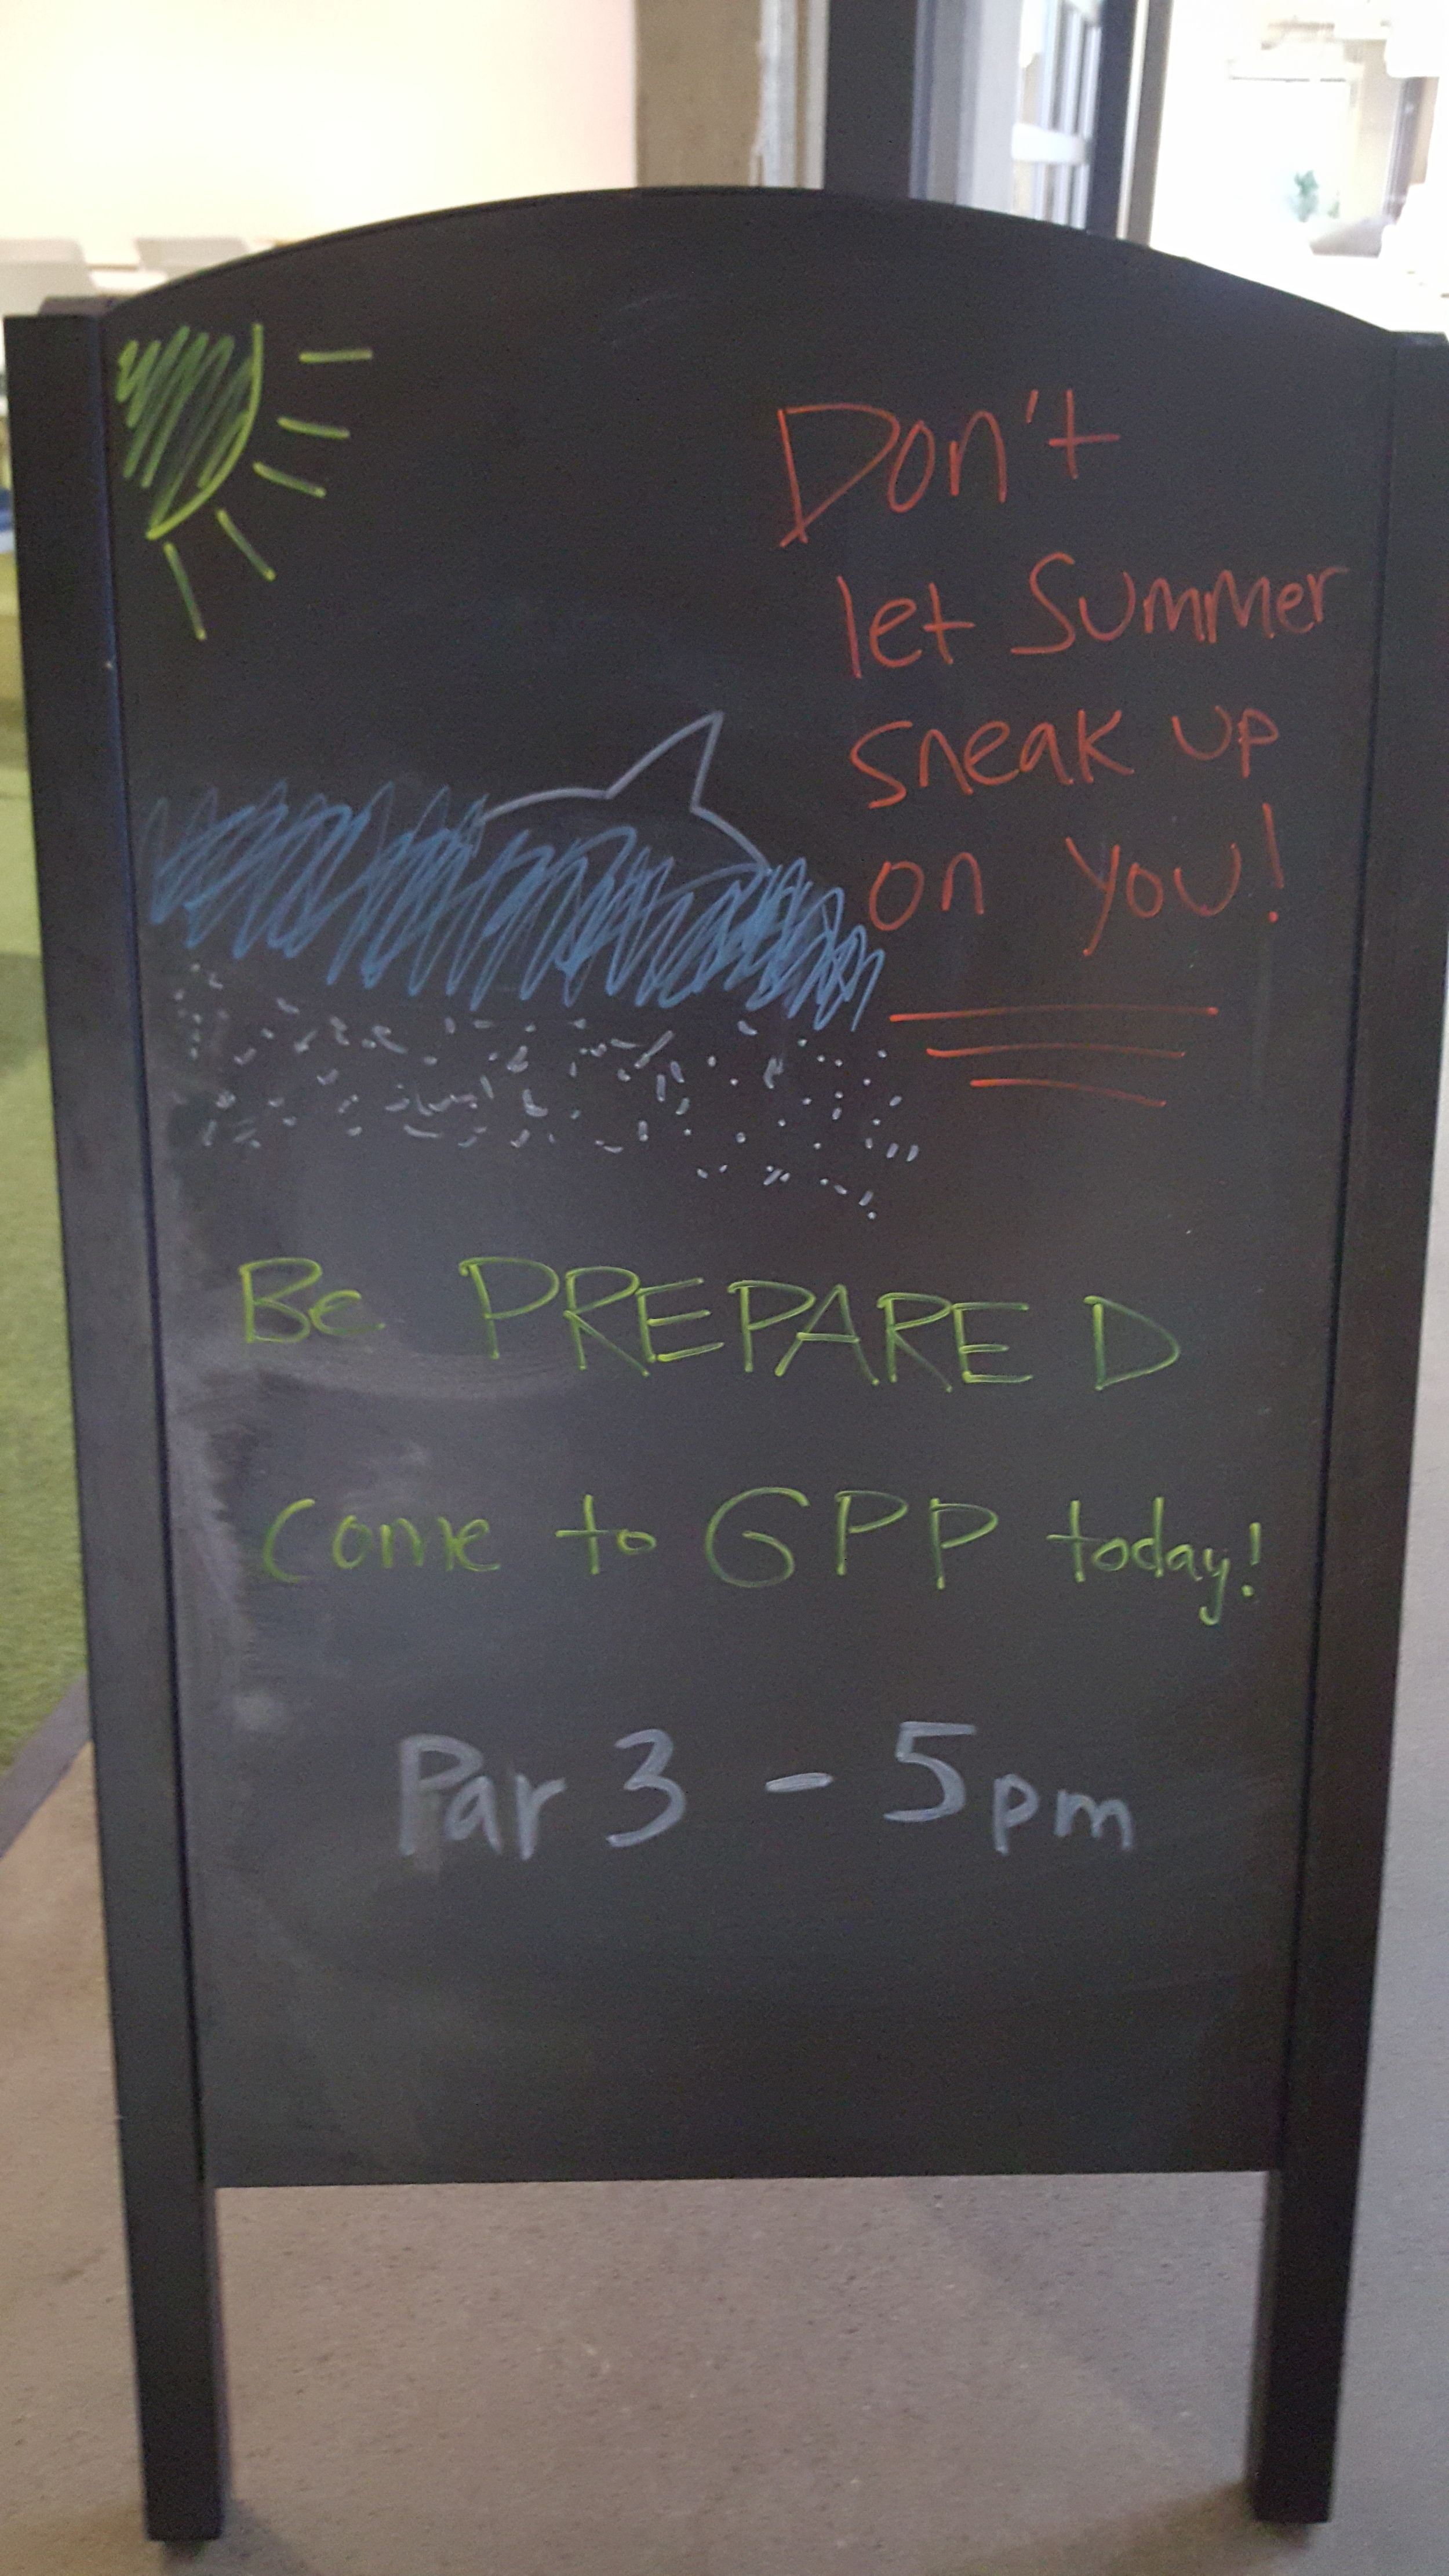 Don't
let Summer
sneak up
on you!
Be PREPARED
Come to GPP today!
Par 3 - 5pm